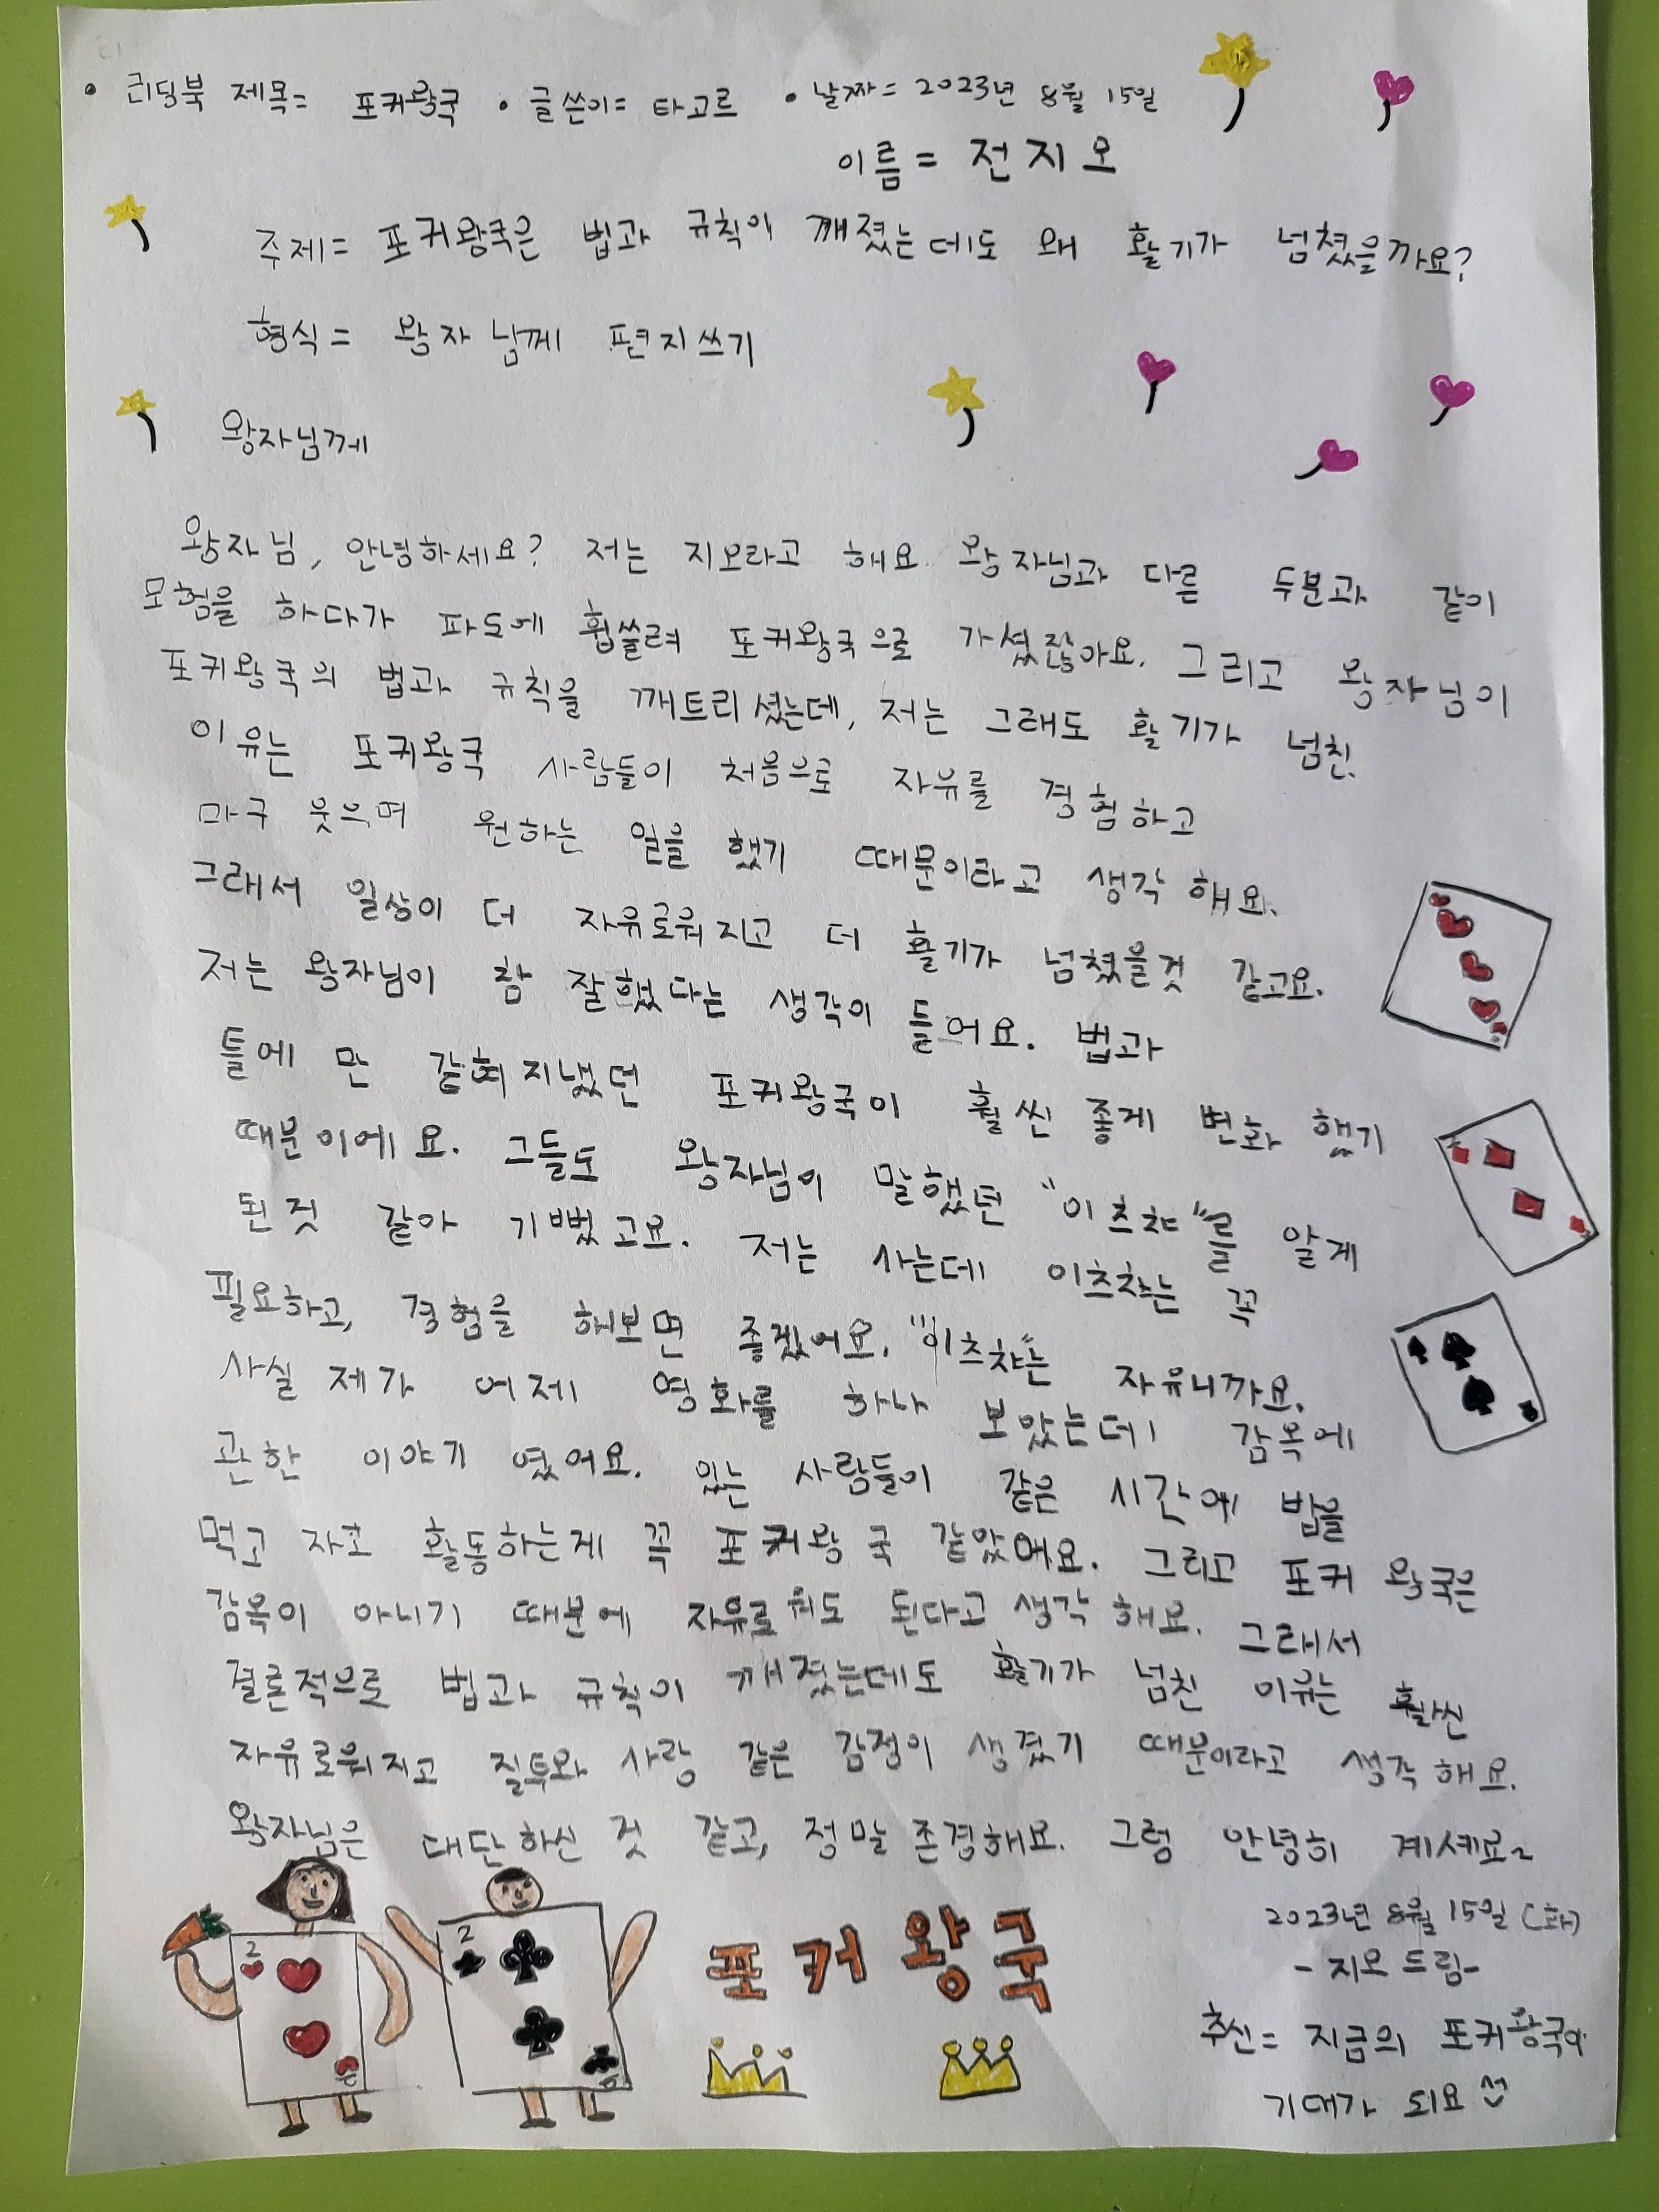 • 리딩북 제목= 포커왕국 • 글쓴이= 타고르 • 날짜= 2023년 8월 15일
이름= 전지오
주제= 포커왕국은 법과 규칙이 깨졌는데도 왜 활기가 넘쳤을까요?
형식= 왕자님께 편지쓰기
왕자님께
왕자님, 안녕하세요? 저는 지오라고 해요. 왕자님과 다른 두분과 같이
모험을 하다가 파도에 휩쓸려 포커왕국으로 가셨잖아요. 그리고 왕자님이
포커왕국의 법과 규칙을 깨트리셨는데, 저는 그래도 활기가 넘친
이유는 포커왕국 사람들이 처음으로 자유를 경험하고
마구 웃으며 원하는 일을 했기 때문이라고 생각해요.
그래서 일상이 더 자유로워지고 더 활기가 넘쳤을것 같고요.
저는 왕자님이 참 잘했다는 생각이 들어요. 법과
틀에 만 갇혀지냈던 포커왕국이 훨씬 좋게 변화 했기
때문이에요. 그들도 왕자님이 말했던 "이츠챠"를 알게
된것 같아 기뻤고요. 저는 사는데 이츠챠는 꼭
필요하고, 경험을 해보면 좋겠어요. "이츠챠"는 자유니까요.
사실 제가 어제 영화를 하나 보았는데 감옥에
관한 이야기 였어요. 있는 사람들이 같은 시간에 밥을
먹고 자고 활동하는게 꼭 포커왕국 같았어요. 그리고 포커 왕국은
감옥이 아니기 때문에 자유로워도 된다고 생각해요. 그래서
결론적으로 법과 규칙이 깨졌는데도 활기가 넘친 이유는 훨씬
자유로워지고 질투와 사랑 같은 감정이 생겼기 때문이라고 생각해요.
왕자님은 대단하신 것 같고, 정말 존경해요. 그럼 안녕히 계세요~
2023년 8월 15일 (화)
-지오 드림-
추신= 지금의 포커왕국이
기대가 되요
2
2
포커왕국